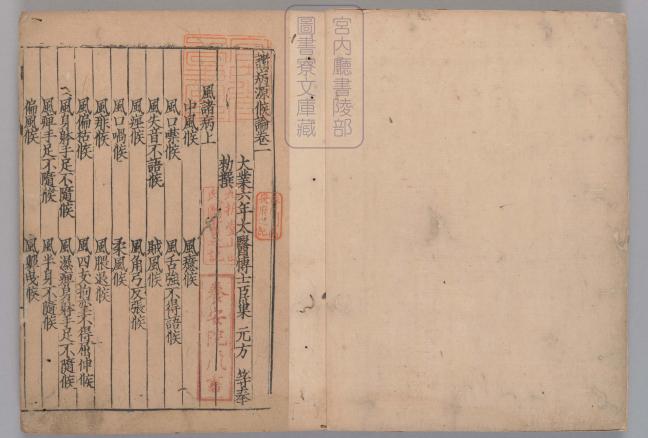 諸病源候論卷一
大業六年太醫博士臣巢 元方 等奉
勅撰
風諸病上
中風候
風癔候
風口噤候
風舌強不得語候
風失音不語候
賊風候
風痙候
風角弓反張候
風口喎候
柔風候
風痱候
風腲退候
風偏枯候
風四支拘攣不得屈伸候
風身躰手足不隨候
風濕痺身躰手足不隨候
風痺手足不隨候
風半身不隨候
偏風候
風軃曳候
宮内廳書陵部
圖書寮文庫藏